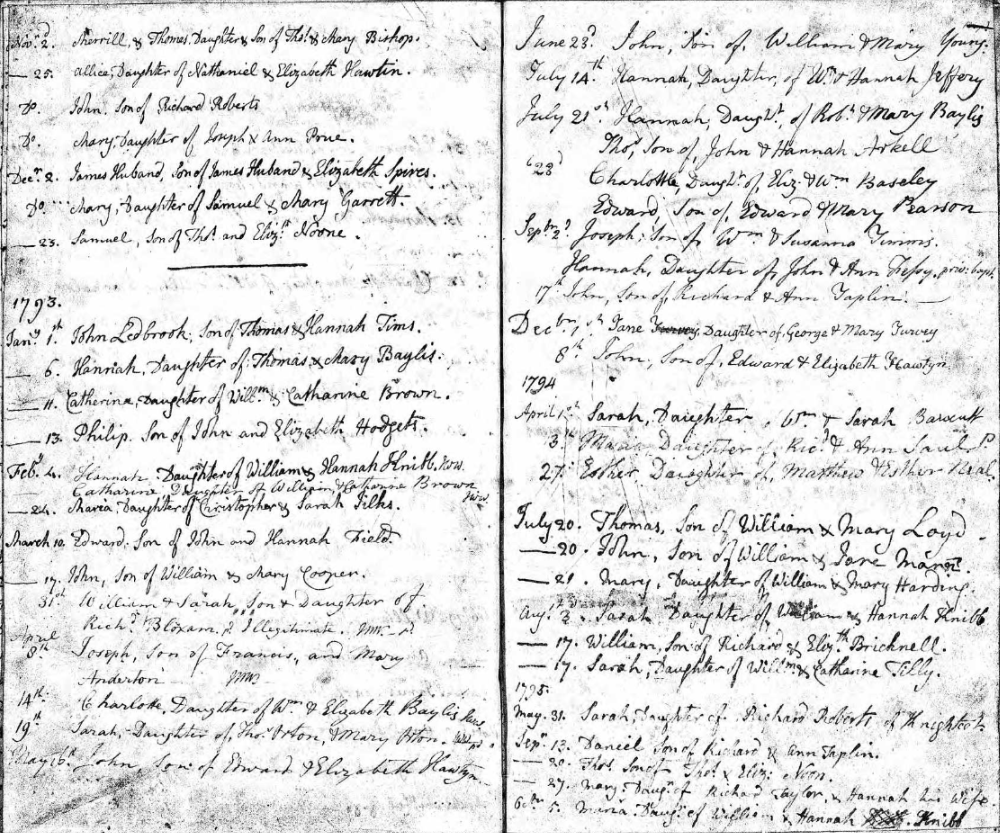 Novr. 2. Sherrill, & Thomas, Daughter & Son of Thos. & Mary Bishop.
— 25. Allice, Daughter of Nathaniel & Elizabeth Hawtin.
Do. John. Son of Richard Roberts
Do. Mary, Daughter of Joseph & Ann Prue.
Decr. 2. James Huband, Son of James Huband & Elizabeth Spires.
Do. Mary, Daughter of Samuel & Mary Garrett.
— 23. Samuel, Son of Thos. and Elizth. Noone.
1793.
Jany. 1st. John Ledbrook, Son of Thomas & Hannah Tims.
— 6. Hannah, Daughter of Thomas & Mary Baylis.
— 11. Catherina, Daughter of Willm. & Catharine Brown.
— 13. Philip. Son of John and Elizabeth Hodgets.
Feby. 4. Hannah, Daughter of William & Hannah Knibb.
Catharine Daughter of William, & Catharine Brown
— 24. Maria, Daughter of Christopher & Sarah Tilks.
March 10. Edward. Son of John and Hannah Field
— 17. John, Son of William & Mary Cooper.
31st William & Sarah, Son & Daughter of
Richd. Bloxam, Illegitimate.
April
8th Joseph, Son of Francis, and Mary
Anderton
14th. Charlotte, Daughter of Wm & Elizabeth Baylis
19th Sarah, Daughter of Thos. Orton, & Mary Orton.
May 16th. John, Son of Edward & Elizabeth Hawtyn
June 23d. John, Son of, William & Mary Young.
July 14th. Hannah, Daughter, of Wm. & Hannah Jeffery
July 21st Hannah, Daughtr. of Robt. & Mary Baylis
Thos. Son of, John & Hannah Arkell
28 Charlotte, Daughtr. of, Eliz. & Wm Baseley
Edward, Son of Edward & Mary Pearson
Septbr 2d. Joseph, Son of, Wm & Susanna Timms.
Hannah, Daughter of, John & Ann priv: bapt.
17th John, Son of, Richard & Ann Taplin.
Decbr, 1st Jane Daughter of, George & Mary Turvey
8th John, Son of, Edward & Elizabeth Hawtyn
1794
April 1st Sarah, Daughter, Wm & Sarah
3 Maria Daughter of, Richd. & Ann
27. Esther, Daughter of, Matthew & Esther Neal.
July 20. Thomas, Son of William & Mary Loyd.
— 20. John, Son of William & Jane Mann.
— 21. Mary, Daughter of William & Mary Harding.
Augst. 3. Sarah, Daughter of William & Hannah Knibb
— 17. William, Son of Richard & Elizth. Bricknell.
— 17. Sarah, Daughter of Willm. & Catharine Tilly.
1795.
May. 31. Sarah, Daughter of Richard Roberts of
Sepr. 13. Daniel Son of Richard & Ann Taplin.
— 20. Thos. Son of Thos. & Eliz: Noon.
— 27. Mary, Daugr. of Richard Taylor, & Hannah his Wife
Octbr. 5. Maria, Daugr. of William & Hannah Knibb